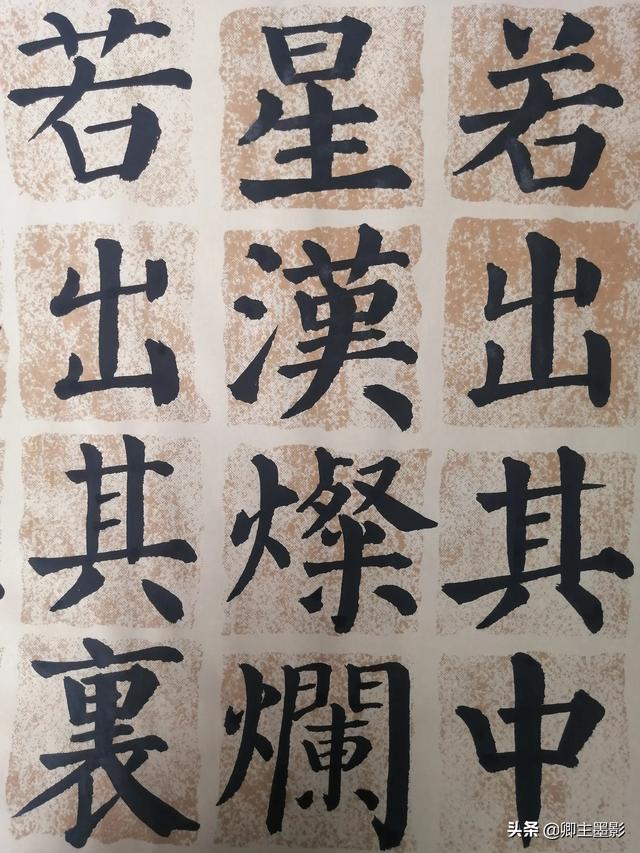 若出其中
星漢燦爛
若出其裏
头条 @卿主墨影